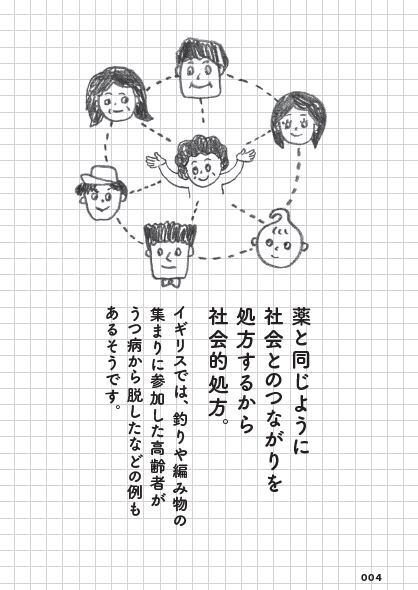 薬と同じように
社会とのつながりを
処方するから
社会的処方。
イギリスでは、釣りや編み物の
集まりに参加した高齢者が
うつ病から脱したなどの例も
あるそうです。
004